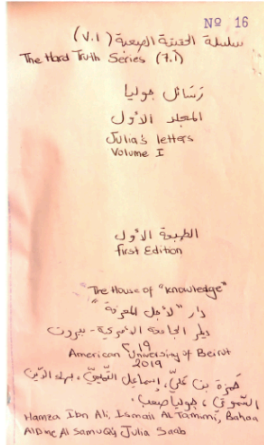 Nº 16
سلسلة الحقيقة الصعبة (٧.١)
The Hard Truth Series (7.1)
رسائل جوليا
المجلد الأول
Julia's letters
Volume I
الطبعة الأولى
first Edition
The House of "knowledge"
دار "لأجل المعرفة"
الجامعة الأميركية - بيروت
٢٠١٩
American University of Beirut
2019
حمزة بن علي، إسماعيل التميمي، بهاء الدين
السموقي، جوليا صعب
Hamza Ibn Ali, Ismail Al Tamimi, Bahaa
AlDine Al Samuqi, Julia Saab